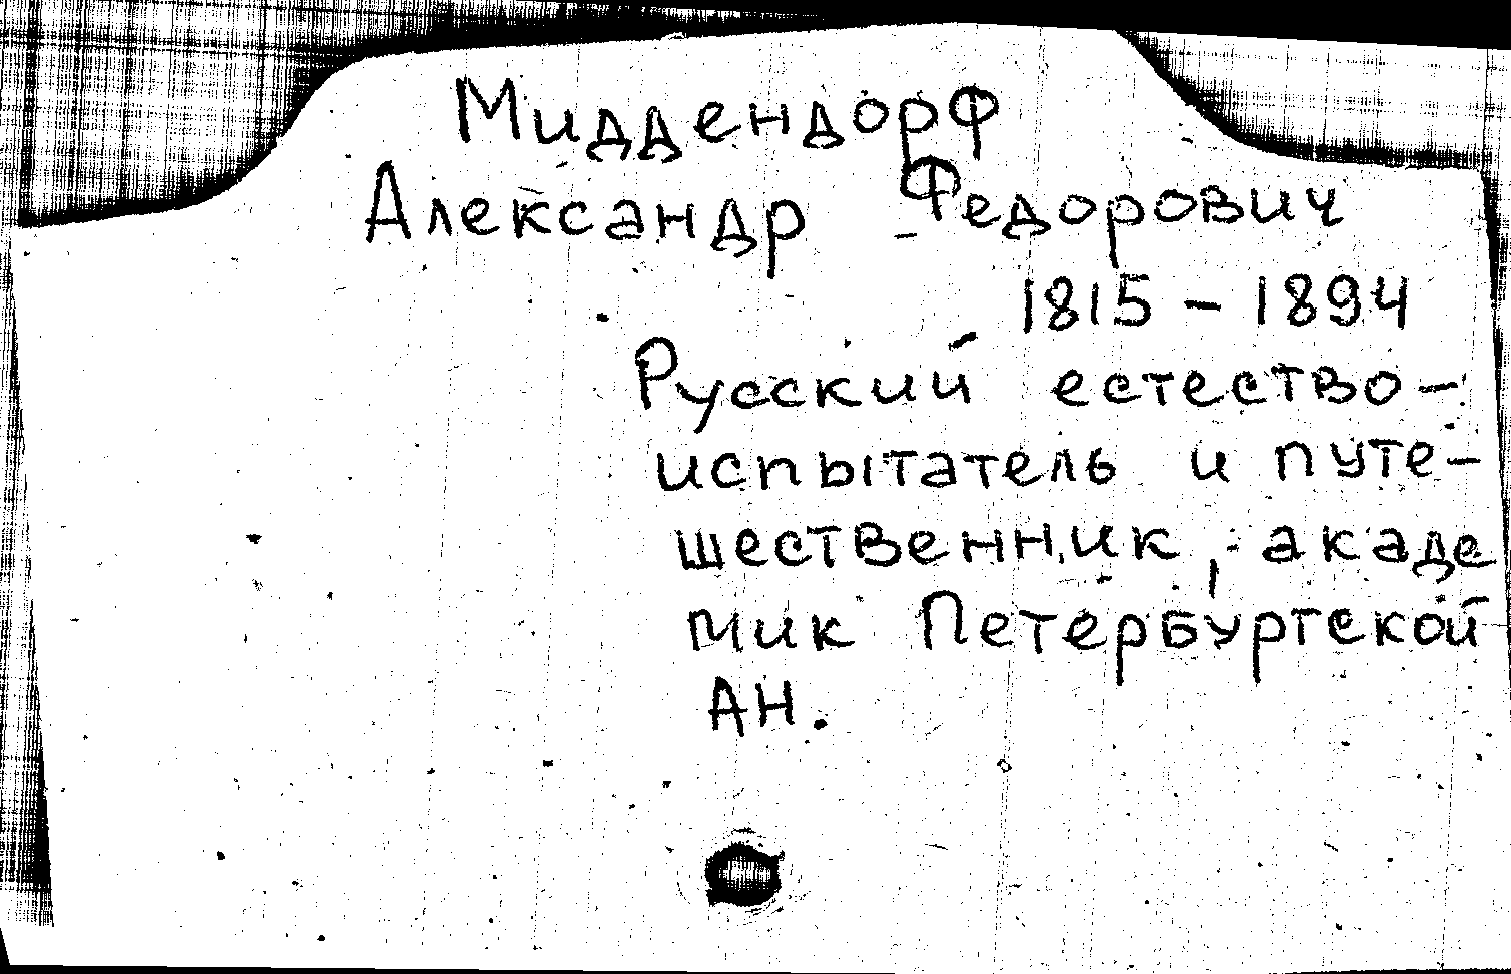 Миддендорф
Александр Федорович
1815 - 1894
Русский естество-
испытатель и путе-
шественник, акаде
мик Петербургской
АН.